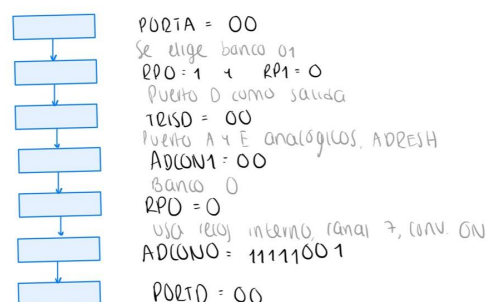 PORTA = 00
Se elige banco 01
RP0 = 1 y RP1 = 0
Puerto D como salida
TRISD = 00
Puerto A y E analógicos, ADRESH
ADCON1 = 00
Banco 0
RP0 = 0
usa reloj interno, canal 7, conv. ON
ADCON0 = 11111001
PORTD = 00